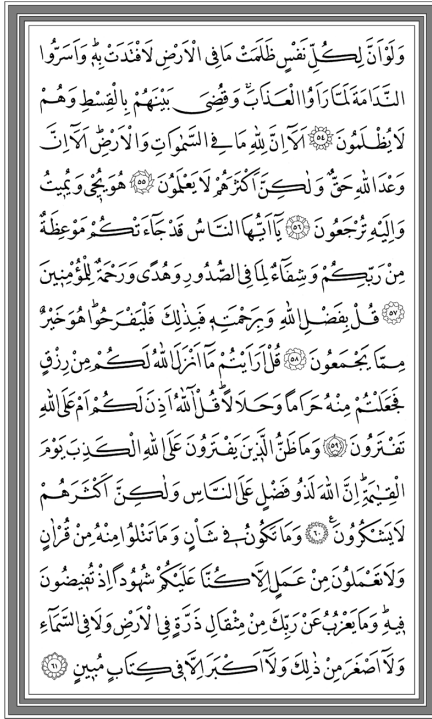 وَلَوْ اَنَّ لِكُلِّ نَفْسٍ ظَلَمَتْ مَا فِي الْاَرْضِ لَافْتَدَتْ بِه۪ۜ وَاَسَرُّوا
النَّدَامَةَ لَمَّا رَاَوُا الْعَذَابَۚ وَقُضِيَ بَيْنَهُمْ بِالْقِسْطِ وَهُمْ
لَا يُظْلَمُونَ ﴿٥٤﴾ اَلَٓا اِنَّ لِلّٰهِ مَا فِي السَّمٰوَاتِ وَالْاَرْضِۜ اَلَٓا اِنَّ
وَعْدَ اللّٰهِ حَقٌّ وَلٰكِنَّ اَكْثَرَهُمْ لَا يَعْلَمُونَ ﴿٥٥﴾ هُوَ يُحْي۪ وَيُم۪يتُ
وَاِلَيْهِ تُرْجَعُونَ ﴿٥٦﴾ يَٓا اَيُّهَا النَّاسُ قَدْ جَٓاءَتْكُمْ مَوْعِظَةٌ
مِنْ رَبِّكُمْ وَشِفَٓاءٌ لِمَا فِي الصُّدُورِ وَهُدًى وَرَحْمَةٌ لِلْمُؤْمِن۪ينَ
﴿٥٧﴾ قُلْ بِفَضْلِ اللّٰهِ وَبِرَحْمَتِه۪ فَبِذٰلِكَ فَلْيَفْرَحُواۜ هُوَ خَيْرٌ
مِمَّا يَجْمَعُونَ ﴿٥٨﴾ قُلْ اَرَاَيْتُمْ مَٓا اَنْزَلَ اللّٰهُ لَكُمْ مِنْ رِزْقٍ
فَجَعَلْتُمْ مِنْهُ حَرَامًا وَحَلَالًاۜ قُلْ آٰللّٰهُ اَذِنَ لَكُمْ اَمْ عَلَى اللّٰهِ
تَفْتَرُونَ ﴿٥٩﴾ وَمَا ظَنُّ الَّذ۪ينَ يَفْتَرُونَ عَلَى اللّٰهِ الْكَذِبَ يَوْمَ
الْقِيٰمَةِۜ اِنَّ اللّٰهَ لَذُو فَضْلٍ عَلَى النَّاسِ وَلٰكِنَّ اَكْثَرَهُمْ
لَا يَشْكُرُونَ۟ ﴿٦٠﴾ وَمَا تَكُونُ ف۪ي شَأْنٍ وَمَا تَتْلُوا مِنْهُ مِنْ قُرْاٰنٍ
وَلَا تَعْمَلُونَ مِنْ عَمَلٍ اِلَّا كُنَّا عَلَيْكُمْ شُهُودًا اِذْ تُف۪يضُونَ
ف۪يهِۜ وَمَا يَعْزُبُ عَنْ رَبِّكَ مِنْ مِثْقَالِ ذَرَّةٍ فِي الْاَرْضِ وَلَا فِي السَّمَٓاءِ
وَلَٓا اَصْغَرَ مِنْ ذٰلِكَ وَلَٓا اَكْبَرَ اِلَّا ف۪ي كِتَابٍ مُب۪ينٍ ﴿٦١﴾